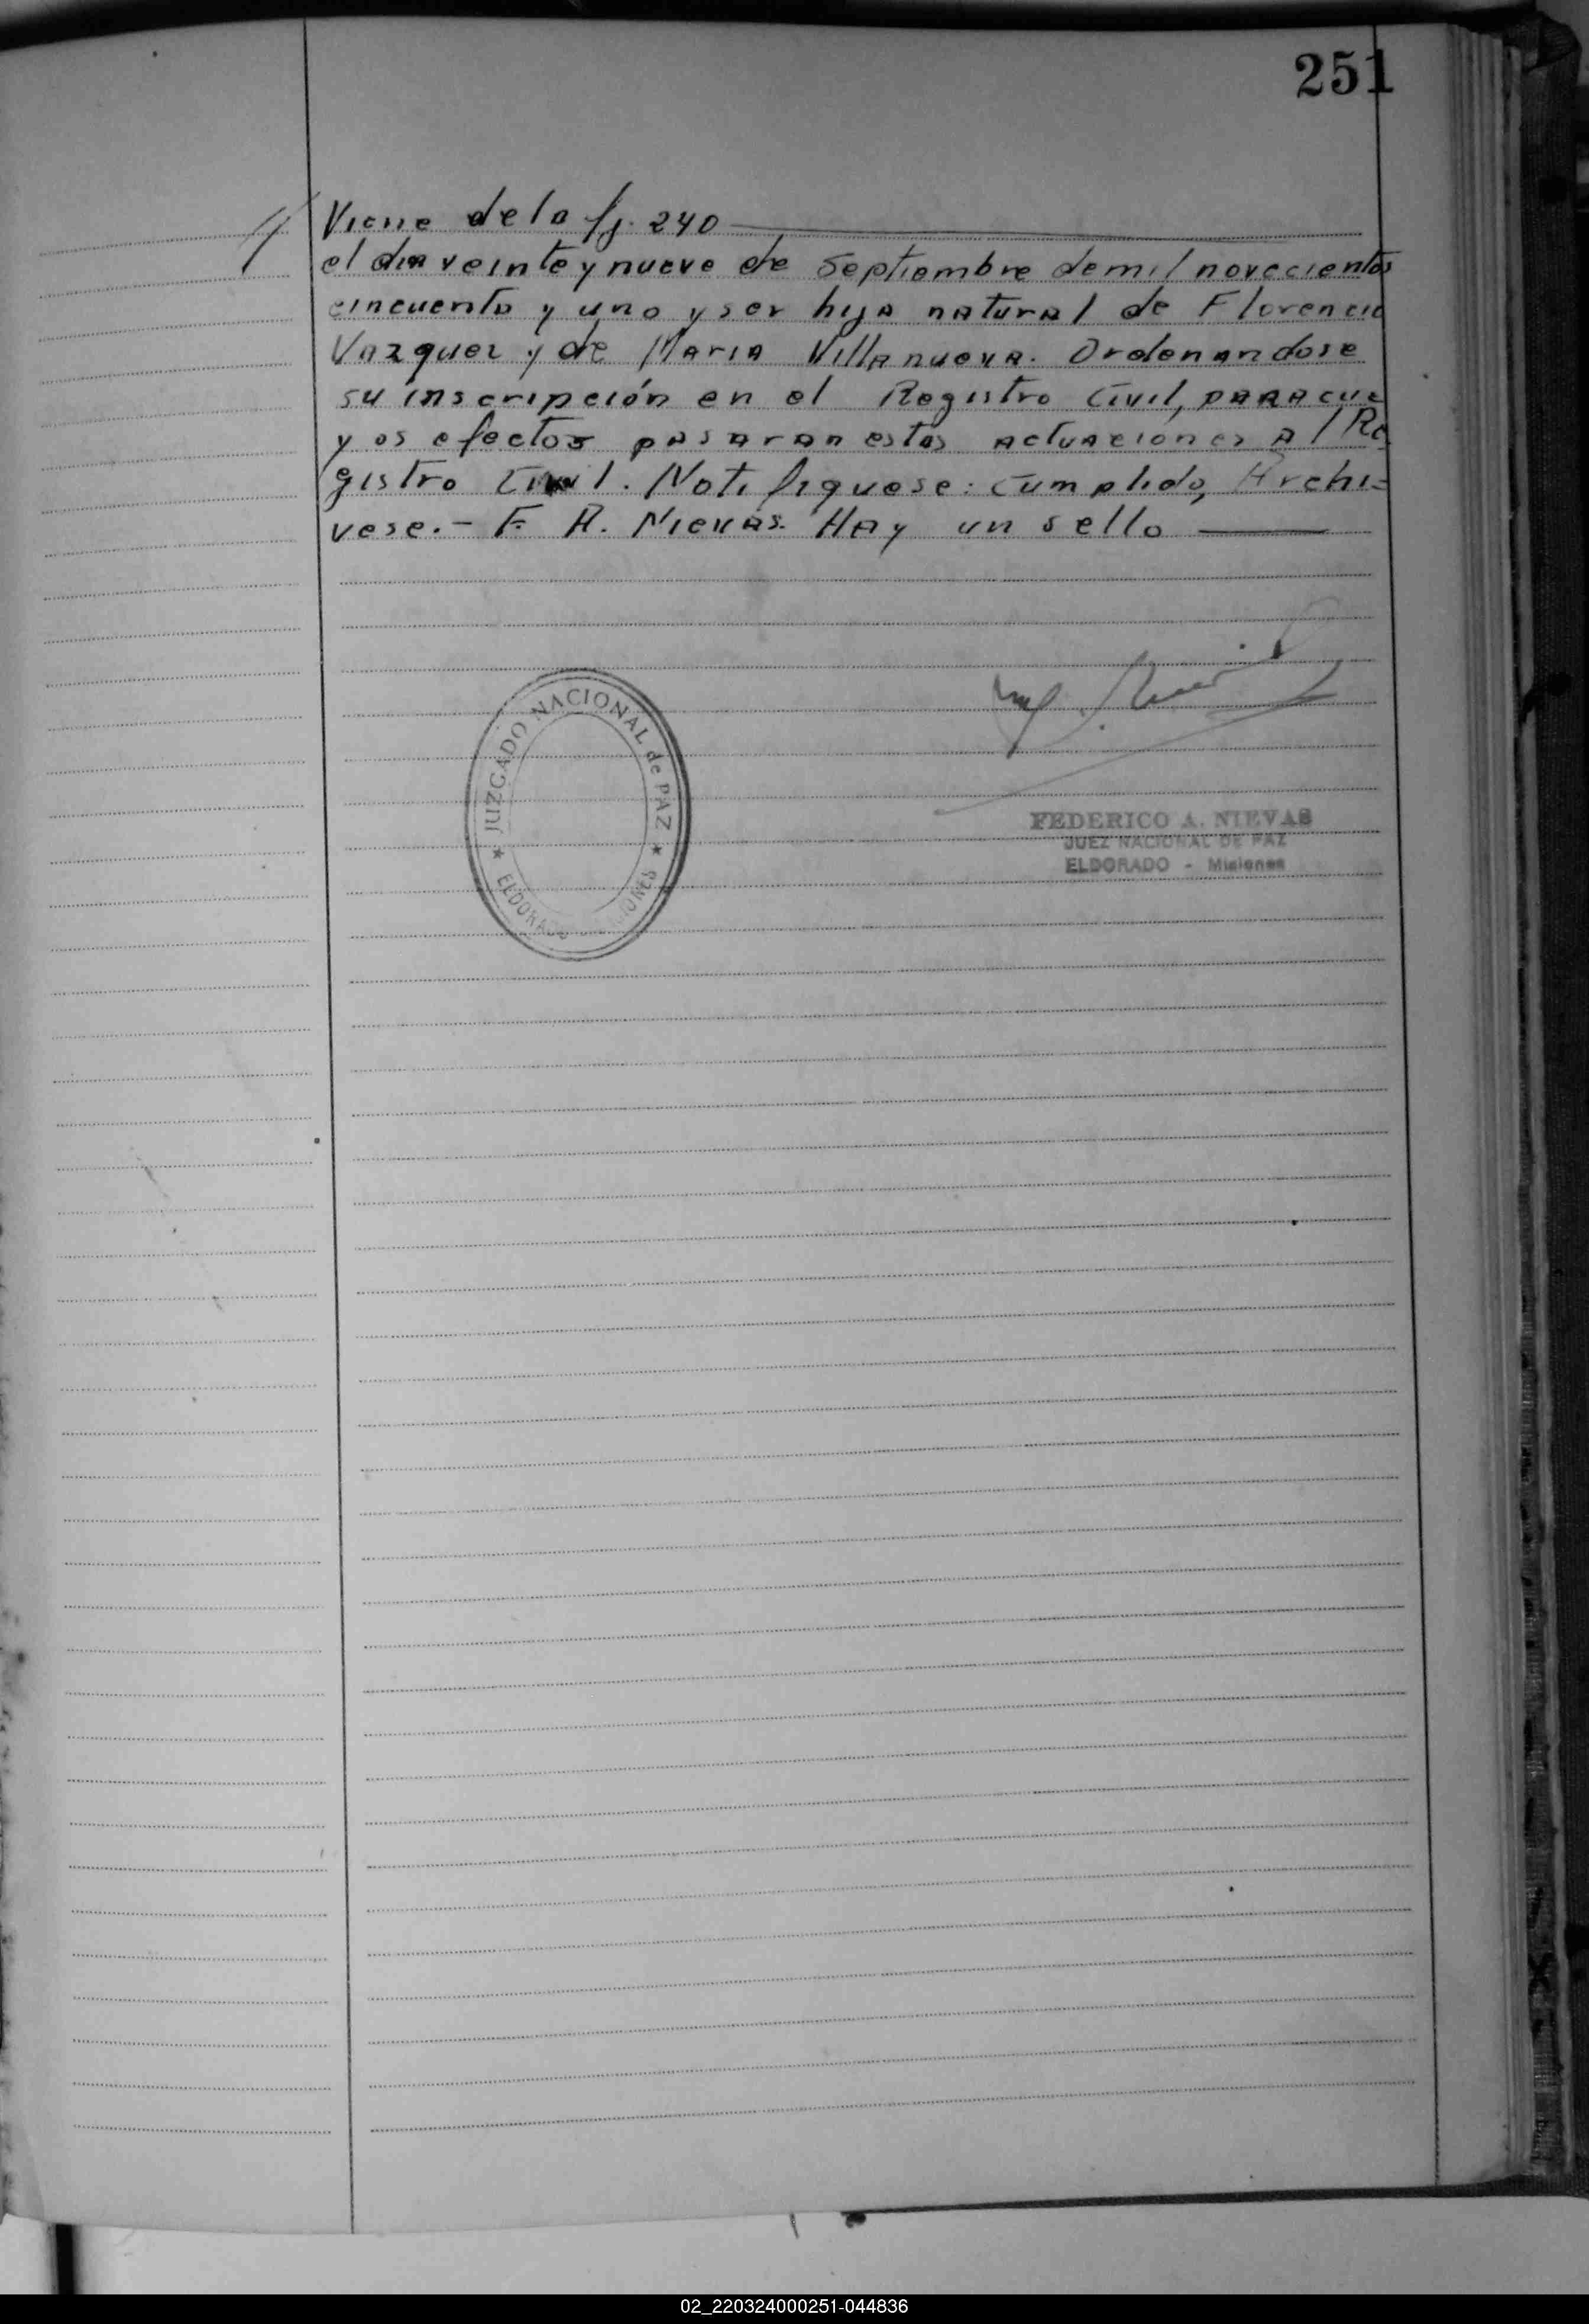 251
// Viene de la fj. 240
el dia veinte y nueve de Septiembre de mil novecientos
cincuenta y uno y ser hija natural de Florencio
Vazquez y de Maria Villanueva. Ordenandose
su inscripción en el Registro Civil, para cu-
yos efectos pasaran estas actuaciones al Re-
gistro Civil. Notifiquese: cumplido, Archi-
vese.- F. A. Nievas. Hay un sello
JUZGADO NACIONAL de PAZ
★ ELDORADO MISIONES ★
FEDERICO A. NIEVAS
JUEZ NACIONAL DE PAZ
ELDORADO - Misiones
02_220324000251-044836